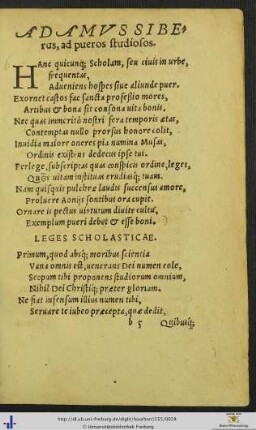 ADAMVS SIBE-
rus, ad pueros studiosos.
HAnc quicunq; Scholam, seu civis in urbe,
frequentas,
Adveniens hospes sive aliunde puer.
Exornet castos fac sancta professio mores,
Artibus & bona sit consona vita bonis.
Nec quas immeritò nostri fera temporis ætas,
Contemptas nullo prorsus honore colit,
Invidia maiore oneres pia numina Musas,
Ordinis existens dedecus ipse tui.
Perlege, subscriptas quas conspicis ordine, leges,
Quęis vitam instituas eruditusq; tuam.
Nam quisquis pulchræ laudis succensus amore,
Proluere Aonijs fontibus ora cupit.
Ornare is pectus virtutum divite cultu,
Exemplum pueri debet & esse boni.
LEGES SCHOLASTICAE.
Primum, quod absq; moribus scientia
Vana omnis est, venerans Dei numen cole,
Scopum tibi proponens studiorum omnium,
Nihil Dei Christiq; præter gloriam.
Ne fiat infensum illius numen tibi,
Servare te iubeo præcepta, quæ dedit,
b 5 Quibusq;
http://dl.ub.uni-freiburg.de/diglit/
© Universitätsbibliothek Freiburg